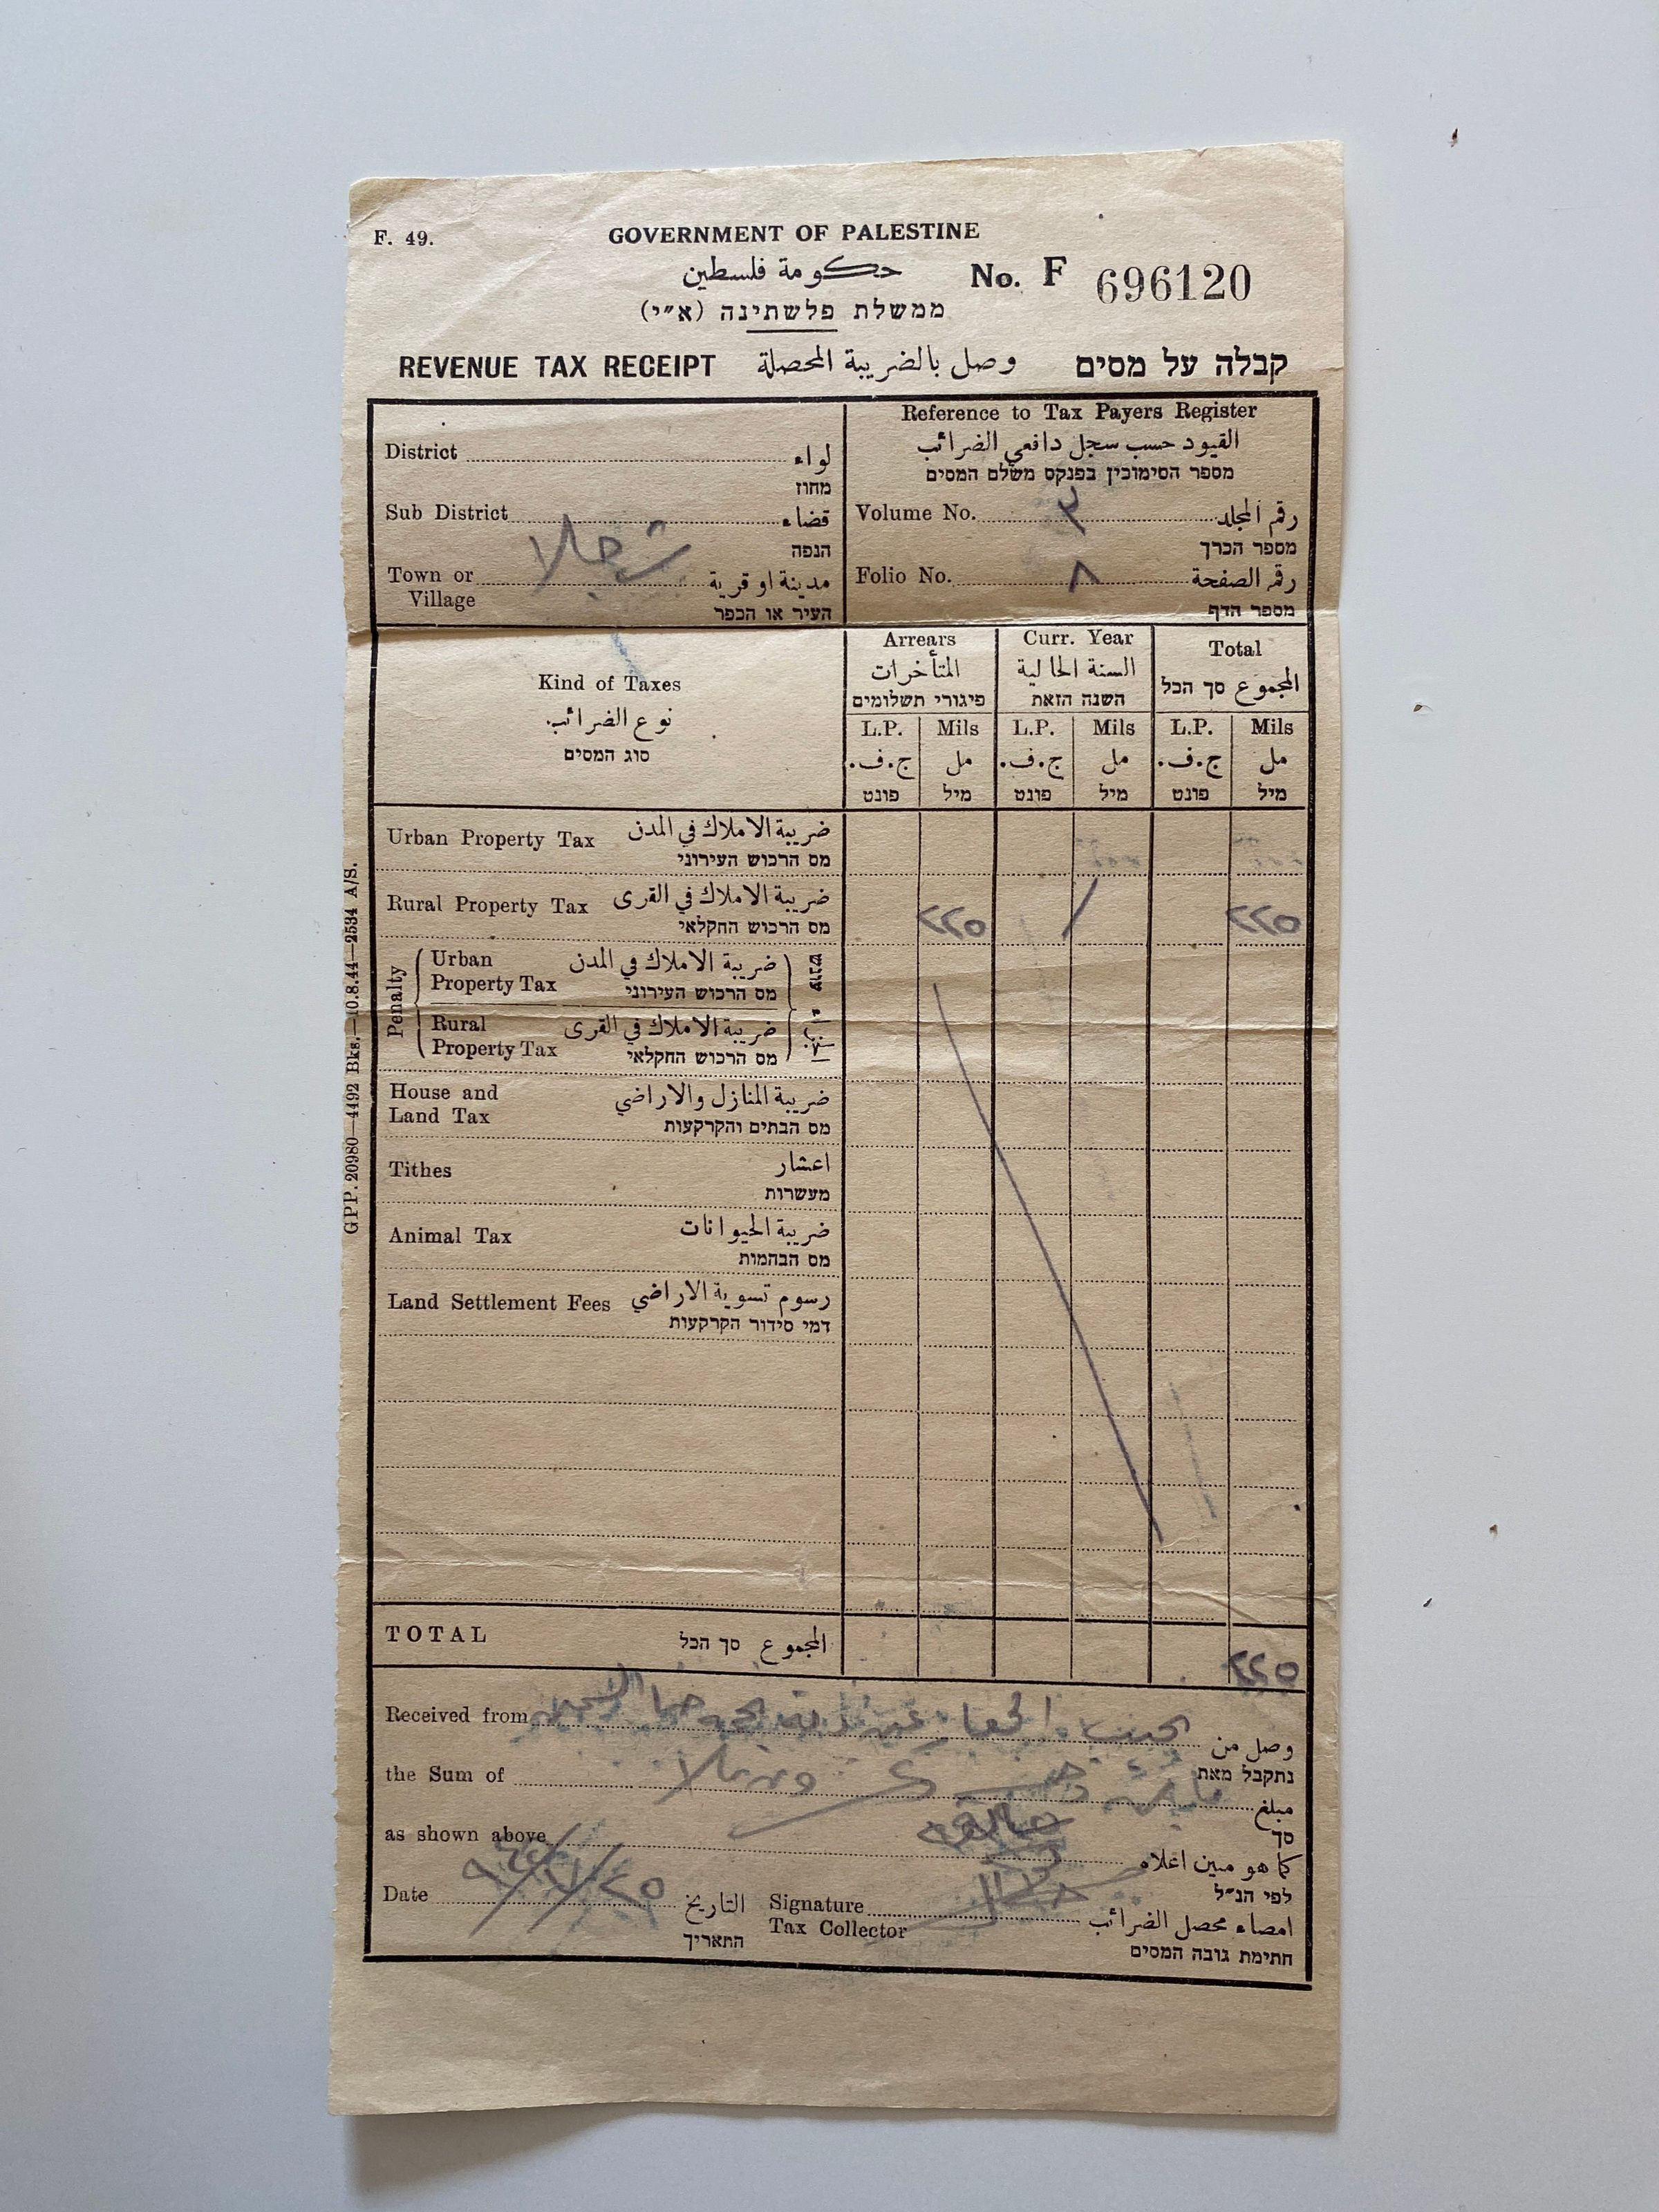 F. 49.
GOVERNMENT OF PALESTINE
حكومة فلسطين
No. F 696120
ממשלת פלשתינה (א״י)
REVENUE TAX RECEIPT وصل بالضريبة المحصلة קבלה על מסים
District لواء
מחוז
Sub District قضاء
הנפה
Town or Village مدينة او قرية
העיר או הכפר
Reference to Tax Payers Register
القيود حسب سجل دافعي الضرائب
מספר הסימוכין בפנקס משלם המסים
Volume No. ٣ رقم المجلد
מספר הכרך
Folio No. ٨ رقم الصفحة
מספר הדף
Kind of Taxes
نوع الضرائب
סוג המסים
Arrears
المتأخرات
פיגורי תשלומים
Curr. Year
السنة الحالية
השנה הזאת
Total
المجموع סך הכל
L.P. Mils L.P. Mils L.P. Mils
ج.ف. مل ج.ف. مل ج.ف. مل
פונט מיל פונט מיל פונט מיל
Urban Property Tax ضريبة الاملاك في المدن
מס הרכוש העירוני
Rural Property Tax ضريبة الاملاك في القرى ٢٢٥ ٢٢٥
מס הרכוש החקלאי
Penalty
Urban Property Tax ضريبة الاملاك في المدن
מס הרכוש העירוני
עונש
Rural Property Tax ضريبة الاملاك في القرى
מס הרכוש החקלאי
House and Land Tax ضريبة المنازل والاراضي
מס הבתים והקרקעות
Tithes اعشار
מעשרות
Animal Tax ضريبة الحيوانات
מס הבהמות
Land Settlement Fees رسوم تسوية الاراضي
דמי סידור הקרקעות
TOTAL المجموع סך הכל ٢٢٥
Received from وصل من
נתקבל מאת
the Sum of مبلغ
סך
as shown above كما هو مبين اعلاه
לפי הנ״ל
Date التاريخ
התאריך
Signature Tax Collector امضاء محصل الضرائب
חתימת גובה המסים
GPP. 20980—4492 Bks.—10.8.44—2534 A/S.